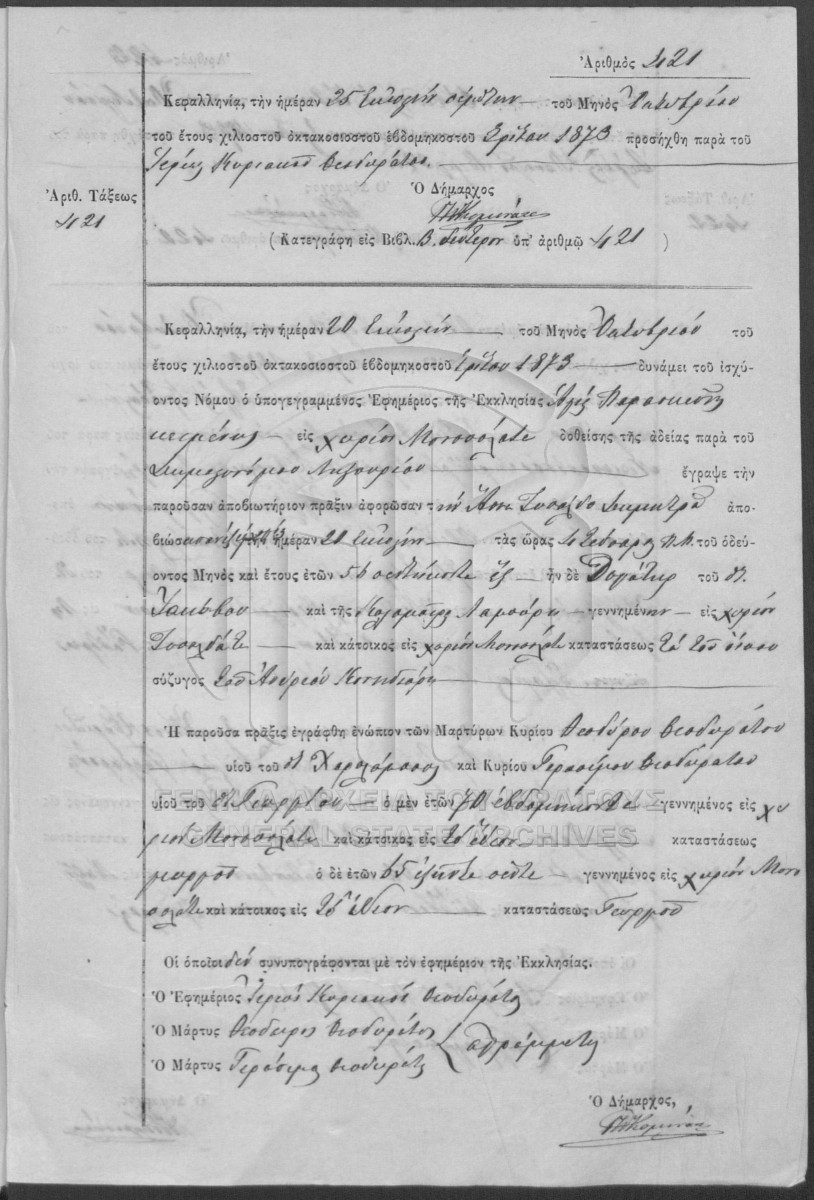 Ἀριθμὸς 421
Κεφαλληνίᾳ, τὴν ἡμέραν 25 Εἰκοστὴν πέμπτην τοῦ Μηνὸς Ὀκτωβρίου
τοῦ ἔτους χιλιοστοῦ ὀκτακοσιοστοῦ ἑβδομηκοστοῦ τρίτου 1873 προσήχθη παρὰ τοῦ
Ἱερέως Κυριακοῦ Θεοδωράτου
Ἀριθ. Τάξεως
421
Ὁ Δήμαρχος
(Κατεγράφη εἰς Βιβλ. Β. δεύτερον ὑπ' ἀριθμῷ 421)
Κεφαλληνίᾳ, τὴν ἡμέραν 20 Εἰκοστὴν τοῦ Μηνὸς Ὀκτωβρίου τοῦ
ἔτους χιλιοστοῦ ὀκτακοσιοστοῦ ἑβδομηκοστοῦ τρίτου 1873 δυνάμει τοῦ ἰσχύ-
οντος Νόμου ὁ ὑπογεγραμμένος Ἐφημέριος τῆς Ἐκκλησίας Ἁγίας Παρασκευῆς
κειμένης εἰς χωρίον Μονοπολάτα δοθείσης τῆς ἀδείας παρὰ τοῦ
Ληξουρίου ἔγραψε τὴν
παροῦσαν ἀποβιωτήριον πρᾶξιν ἀφορῶσαν τὴν ἀπο-
βιώσασαν τὴν ἡμέραν 20 Εἰκοστὴν τὰς ὥρας 4 τέσσαρας Π.Μ. τοῦ ὁδεύ-
οντος Μηνὸς καὶ ἔτους ἐτῶν 56 πεντήκοντα ἓξ ἦν δὲ θυγάτηρ τοῦ
Ἰακώβου καὶ τῆς γεννημένην εἰς χωρίον
καὶ κάτοικος εἰς χωρίον Μονοπολάτα καταστάσεως
σύζυγος τοῦ Ἀνδρέου
Ἡ παροῦσα πρᾶξις ἐγράφθη ἐνώπιον τῶν Μαρτύρων Κυρίου Θεοδώρου Θεοδωράτου
υἱοῦ τοῦ Χαραλάμπους καὶ Κυρίου Γερασίμου Θεοδωράτου
υἱοῦ τοῦ Γεωργίου ὁ μὲν ἐτῶν 70 ἑβδομήκοντα γεννημένος εἰς χω
ρίον Μονοπολάτα καὶ κάτοικος εἰς τὸ ἴδιον καταστάσεως
γεωργοῦ ὁ δὲ ἐτῶν 65 ἑξήντα πέντε γεννημένος εἰς χωρίον Μονο
πολάτα καὶ κάτοικος εἰς τὸ ἴδιον καταστάσεως Γεωργοῦ
Οἱ ὁποῖοι δὲν συνυπογράφονται μὲ τὸν ἐφημέριον τῆς Ἐκκλησίας.
Ὁ Ἐφημέριος Ἱερεὺς Κυριακὸς Θεοδωράτος
Ὁ Μάρτυς Θεόδωρος Θεοδωράτος
Ὁ Μάρτυς Γεράσιμος Θεοδωράτος
ἀγράμματοι
Ὁ Δήμαρχος,
ΓΕΝΙΚΑ ΑΡΧΕΙΑ ΤΟΥ ΚΡΑΤΟΥΣ
GENERAL STATE ARCHIVES